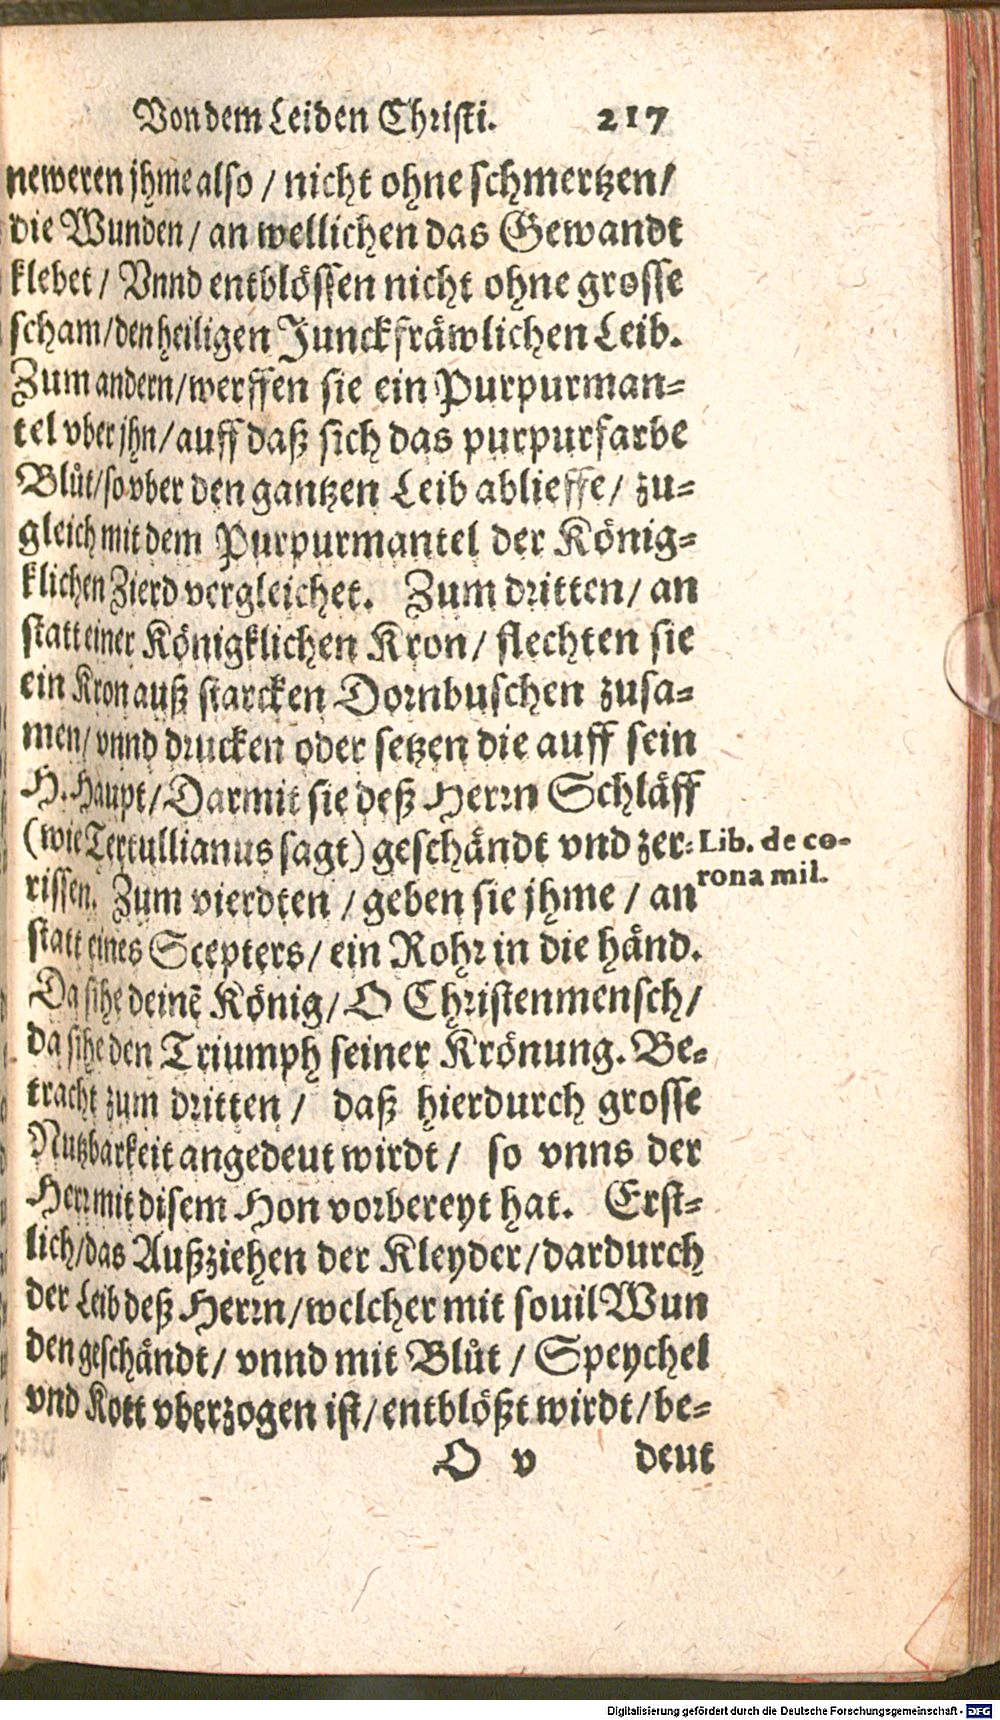 Von dem Leiden Christi. 217
neweren jhme also / nicht ohne schmertzen /
die Wunden / an wellichen das Gewandt
klebet / Vnnd entblössen nicht ohne grosse
scham / den heiligen Junckfräwlichen Leib.
Zum andern / werffen sie ein Purpurman-
tel vber jhn / auff daß sich das purpurfarbe
Blůt / so vber den gantzen Leib ablieffe / zu-
gleich mit dem Purpurmantel der König-
klichen Zierd vergleichet. Zum dritten / an
statt einer Königklichen Kron / flechten sie
ein Kron auß starcken Dornbuschen zusa-
men / vnnd drucken oder setzen die auff sein
H. Haupt / Darmit sie deß Herrn Schläff
(wie Tertullianus sagt) geschändt vnd zer-
Lib. de co-
rona mil.
rissen. Zum vierdten / geben sie jhme / an
statt eines Scepters / ein Rohr in die händ.
Da sihe deinẽ König / O Christenmensch /
da sihe den Triumph seiner Krönung. Be-
tracht zum dritten / daß hierdurch grosse
Nutzbarkeit angedeut wirdt / so vnns der
Herr mit disem Hon vorbereyt hat. Erst-
lich / das Außziehen der Kleyder / dardurch
der Leib deß Herrn / welcher mit souil Wun
den geschändt / vnnd mit Blůt / Speychel
vnd Kott vberzogen ist / entblößt wirdt / be-
O v deut
Digitalisierung gefördert durch die Deutsche Forschungsgemeinschaft - DFG